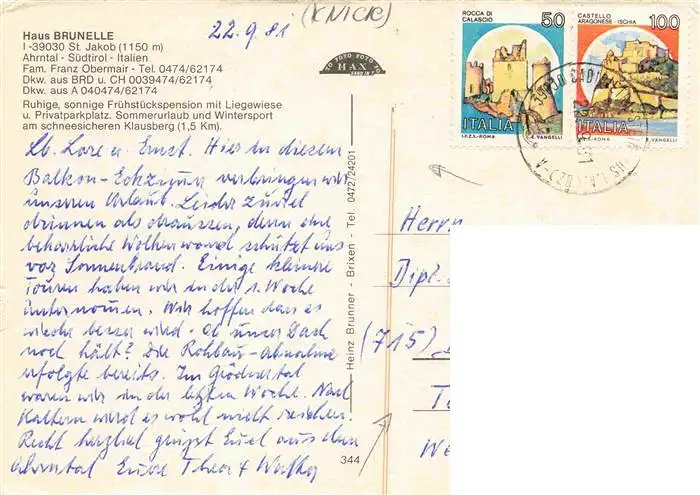 (KNICK)
22.9.81
Haus BRUNELLE
I -39030 St. Jakob (1150 m)
Ahrntal - Südtirol - Italien
Fam. Franz Obermair - Tel. 0474/62174
Dkw. aus BRD u. CH 0039474/62174
Dkw. aus A 040474/62174
Ruhige, sonnige Frühstückspension mit Liegewiese
u. Privatparkplatz. Sommerurlaub und Wintersport
am schneesicheren Klausberg (1,5 Km).
FOTO FOTO FOTO FOTO
HAX
ROCCA DI
CALASCIO
50
ITALIA
I.P.Z.S.-ROMA
E. VANGELLI
CASTELLO
ARAGONESE ISCHIA
100
ITALIA
I.P.Z.S.-ROMA
E. VANGELLI
Lb. Lore u. Ernst. Hier in diesem
Balkon-Eckzimmer verbringen wir
unseren Urlaub. Leider zuviel
drinnen als draussen, denn eine
beharrliche Wolkenwand schützt uns
vor Sonnenbrand. Einige kleinere
Touren haben wir in der 1. Woche
unternommen. Wir hoffen dass es
wieder besser wird. Ob unser Dach
noch hält? Die Rohbau-Abnahme
erfolgte bereits. Im Grödnertal
waren wir in der letzten Woche. Nach
Kaltern wird es wohl nicht reichen.
Recht herzlich grüsst Euch aus dem
Ahrntal Eure Thea +
Heinz Brunner - Brixen - Tel. 0472/24201
344
Herrn
Dipl.-
(715)